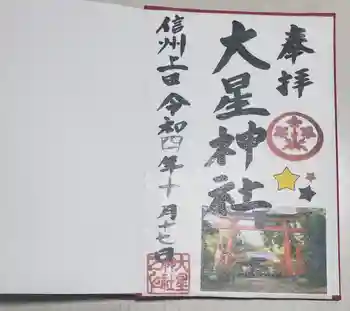 奉拝
大星神社
信州上田 令和四年十月十七日